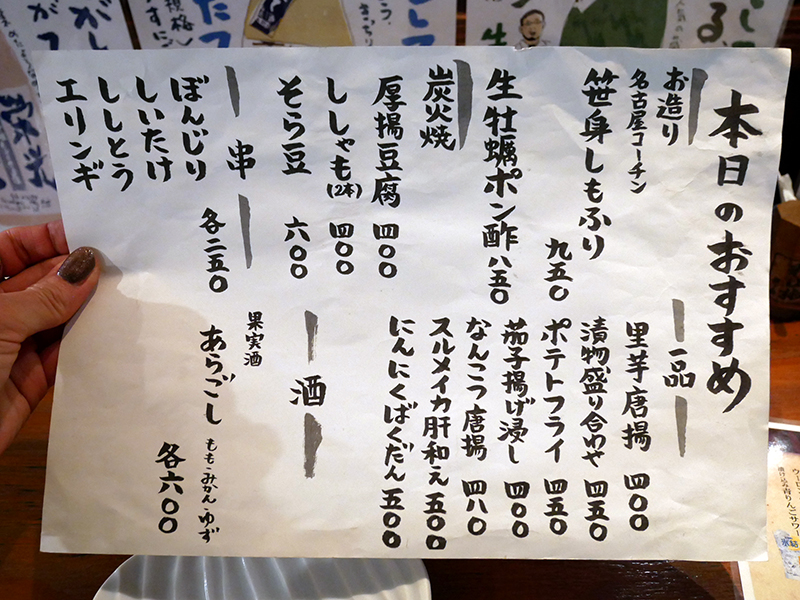 本日のおすすめ
お造り
名古屋コーチン
笹身しもふり
九五〇
生牡蠣ポン酢 八五〇
炭火焼
厚揚豆腐 四〇〇
ししゃも(2本) 四〇〇
そら豆 六〇〇
串
ぼんじり
しいたけ
ししとう
エリンギ
各二五〇
一品
里芋唐揚 四〇〇
漬物盛り合わせ 四五〇
ポテトフライ 四五〇
茄子揚げ浸し 四〇〇
なんこつ唐揚 四八〇
スルメイカ肝和え 五〇〇
にんにくばくだん 五〇〇
酒
果実酒
あらごし もも・みかん・ゆず
各六〇〇